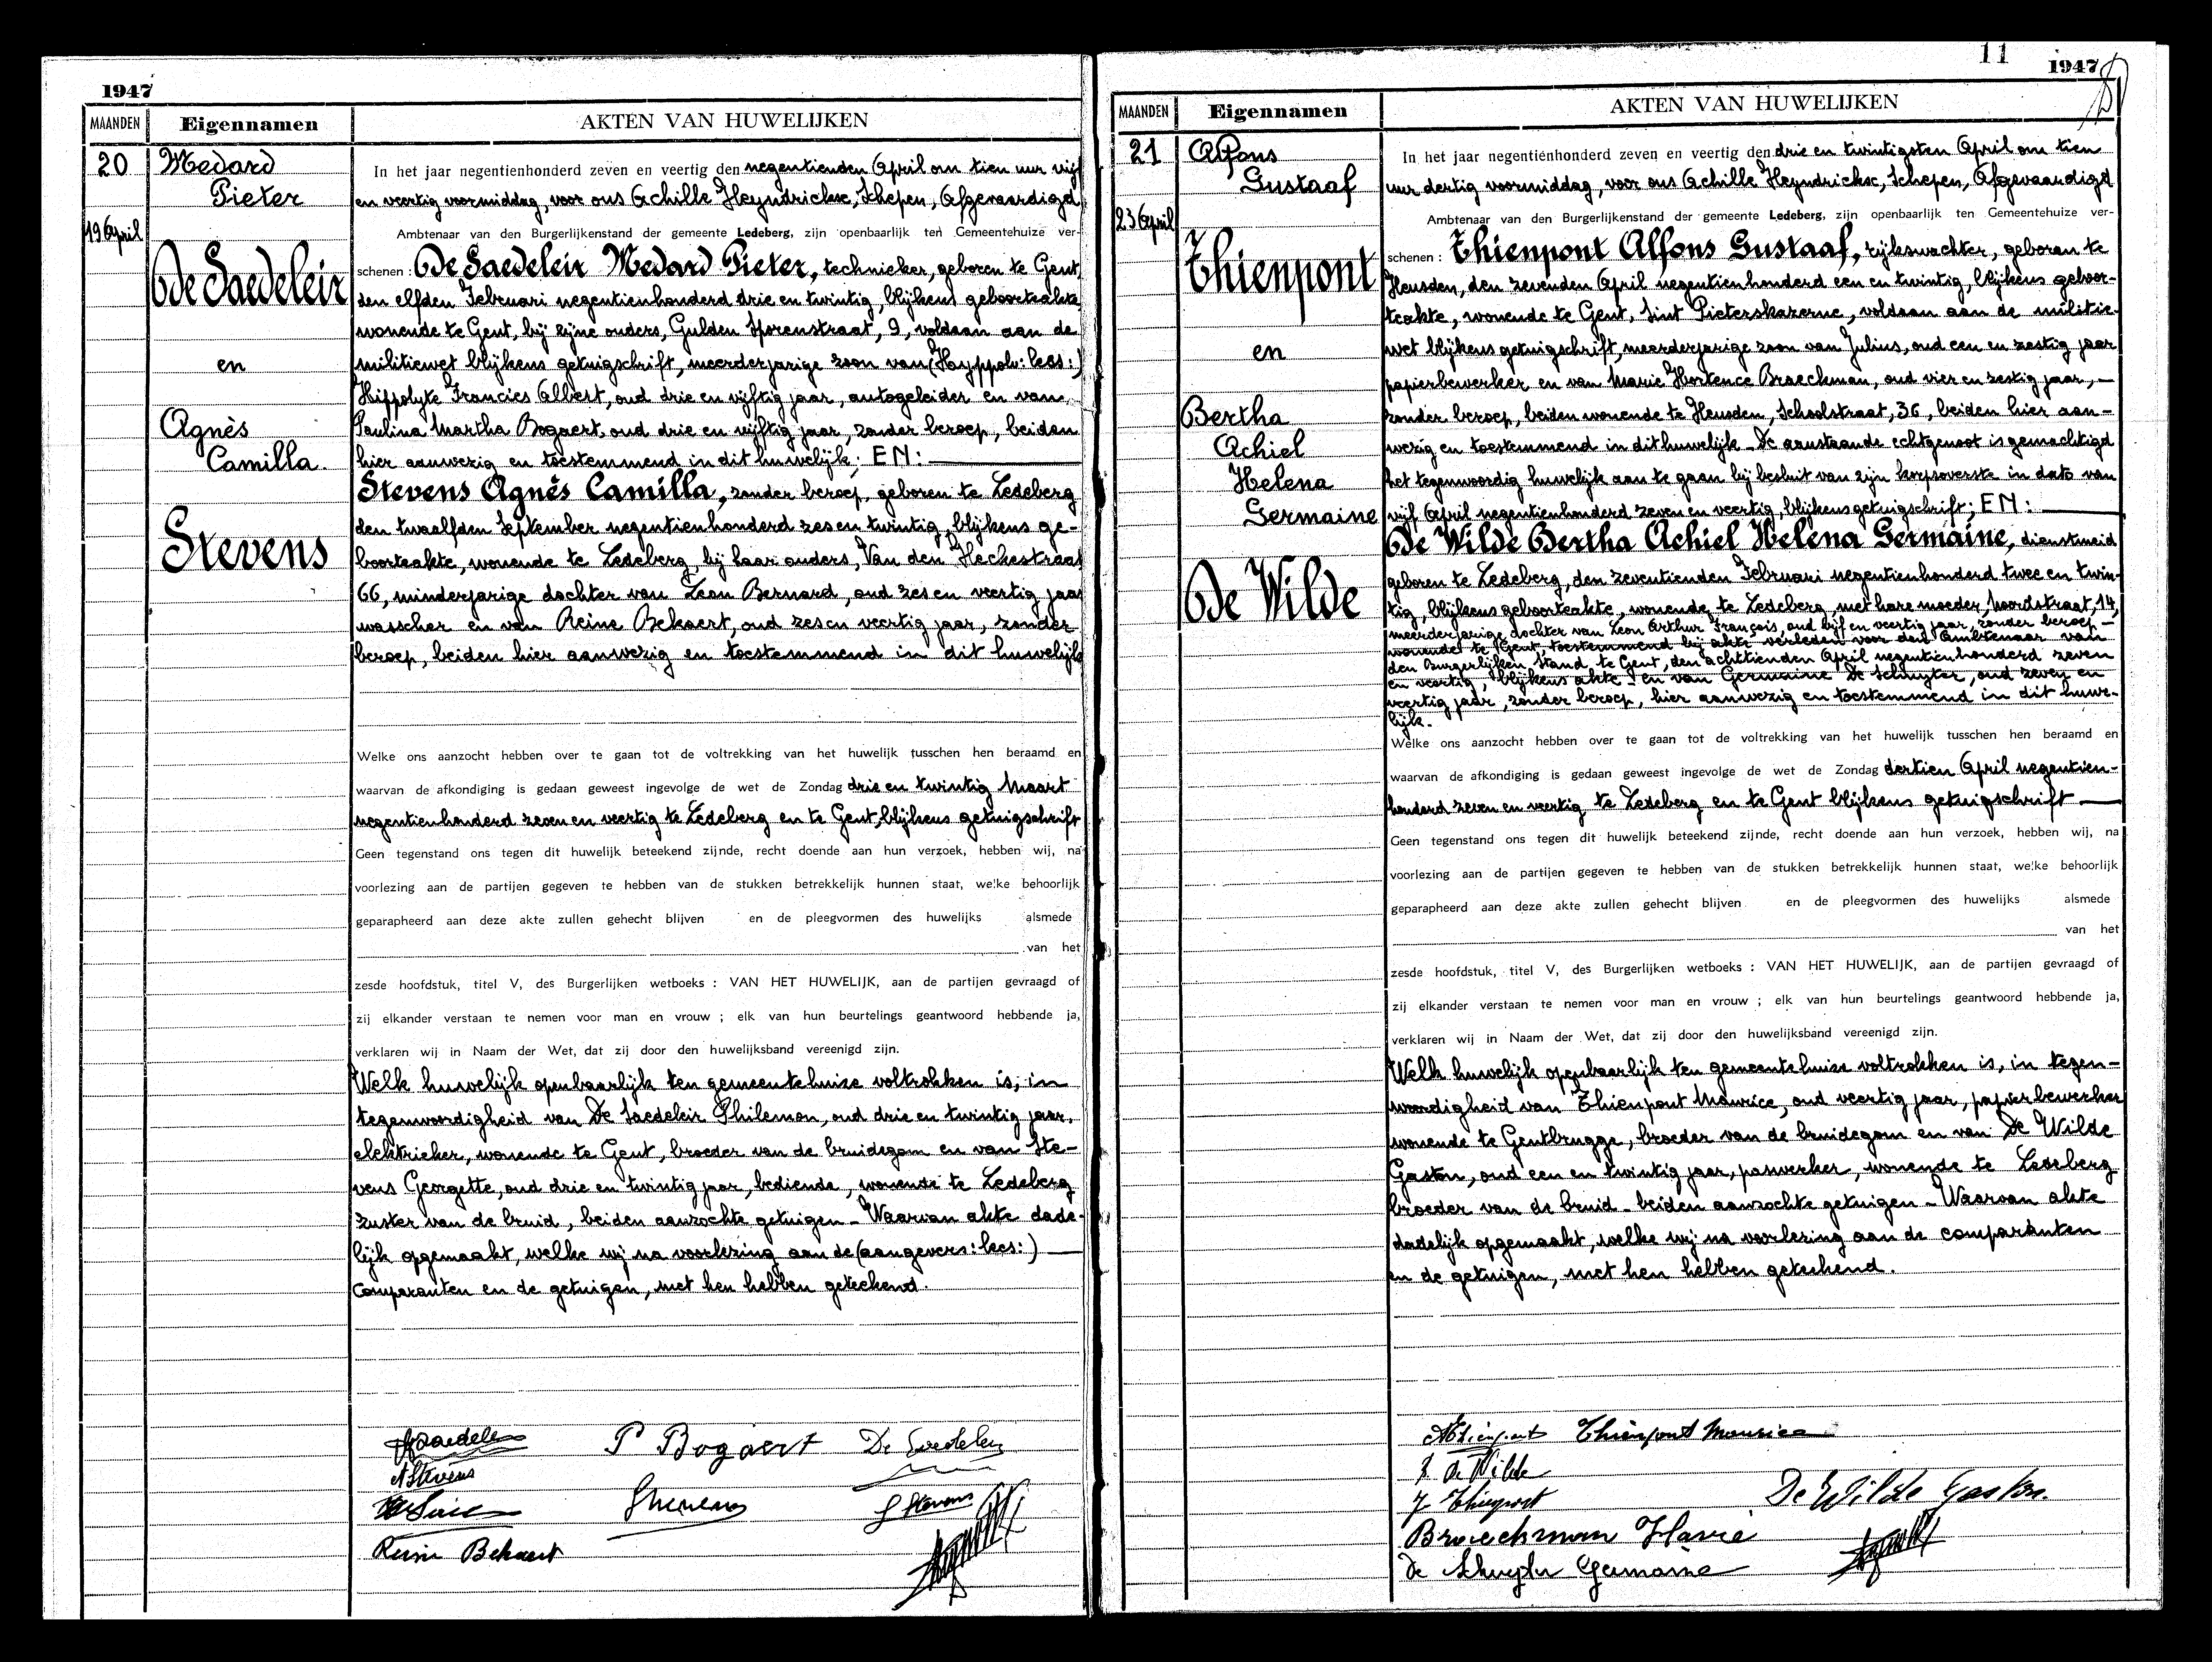 1947
MAANDEN
Eigennamen
AKTEN VAN HUWELIJKEN
20
19 April
Medard
Pieter
De Saedeleir
en
Agnès
Camilla.
Stevens
In het jaar negentienhonderd zeven en veertig den negentienden April om tien uur vijf
en veertig voormiddag, voor ons Achille Heyndrickx, Schepen, Afgevaardigd
Ambtenaar van den Burgerlijkenstand der gemeente Ledeberg, zijn openbaarlijk ten Gemeentehuize ver-
schenen : De Saedeleir Medard Pieter, technieker, geboren te Gent,
den elfden Februari negentienhonderd drie en twintig, blijkens geboorteakte,
wonende te Gent, bij zijne ouders, Gulden Sporenstraat, 9, voldaan aan de
militiewet blijkens getuigschrift, meerderjarige zoon van (Hyppolv: lees:)
Hippolyte Francies Albert, oud drie en vijftig jaar, autogeleider en van
Paulina Martha Bogaert, oud drie en vijftig jaar, zonder beroep, beiden
hier aanwezig en toestemmend in dit huwelijk; EN:
Stevens Agnès Camilla, zonder beroep, geboren te Ledeberg
den twaalfden September negentienhonderd zes en twintig, blijkens ge-
boorteakte, wonende te Ledeberg, bij haar ouders, Van den Heckestraat
66, minderjarige dochter van Leon Bernard, oud zes en veertig jaar
wasscher en van Reine Bekaert, oud zes en veertig jaar, zonder
beroep, beiden hier aanwezig en toestemmend in dit huwelijk
Welke ons aanzocht hebben over te gaan tot de voltrekking van het huwelijk tusschen hen beraamd en
waarvan de afkondiging is gedaan geweest ingevolge de wet de Zondag drie en twintig Maart
negentienhonderd zeven en veertig te Ledeberg en te Gent, blijkens getuigschrift
Geen tegenstand ons tegen dit huwelijk beteekend zijnde, recht doende aan hun verzoek, hebben wij, na
voorlezing aan de partijen gegeven te hebben van de stukken betrekkelijk hunnen staat, welke behoorlijk
geparapheerd aan deze akte zullen gehecht blijven en de pleegvormen des huwelijks alsmede
van het
zesde hoofdstuk, titel V, des Burgerlijken wetboeks : VAN HET HUWELIJK, aan de partijen gevraagd of
zij elkander verstaan te nemen voor man en vrouw ; elk van hun beurtelings geantwoord hebbende ja,
verklaren wij in Naam der Wet, dat zij door den huwelijksband vereenigd zijn.
Welk huwelijk openbaarlijk ten gemeentehuize voltrokken is, in
tegenwoordigheid van De Saedeleir Philemon, oud drie en twintig jaar,
elektrieker, wonende te Gent, broeder van de bruidegom en van Ste-
vens Georgette, oud drie en twintig jaar, bediende, wonende te Ledeberg
zuster van de bruid, beiden aanzochte getuigen - Waarvan akte dade-
lijk opgemaakt, welke wij na voorlezing aan de (aangevers: lees:)
comparanten en de getuigen, met hen hebben geteekend.
P Bogaert
A Stevens
G Stevens
Reine Bekaert
11
1947
MAANDEN
Eigennamen
AKTEN VAN HUWELIJKEN
21
23 April
Alfons
Gustaaf
Thienpont
en
Bertha
Achiel
Helena
Germaine
De Wilde
In het jaar negentienhonderd zeven en veertig den drie en twintigsten April om tien
uur dertig voormiddag, voor ons Achille Heyndrickx, Schepen, Afgevaardigd
Ambtenaar van den Burgerlijkenstand der gemeente Ledeberg, zijn openbaarlijk ten Gemeentehuize ver-
schenen : Thienpont Alfons Gustaaf, rijkswachter, geboren te
Heusden, den zevenden April negentienhonderd een en twintig, blijkens geboor-
teakte, wonende te Gent, Sint Pieterskazerne, voldaan aan de militie-
wet blijkens getuigschrift, meerderjarige zoon van Julius, oud een en zestig jaar
papierbewerker en van Marie Hortence Braeckman, oud vier en zestig jaar, —
zonder beroep, beiden wonende te Heusden, Schoolstraat, 36, beiden hier aan-
wezig en toestemmend in dit huwelijk. De aanstaande echtgenoot is gemachtigd
het tegenwoordig huwelijk aan te gaan bij besluit van zijn korpsoverste in dato van
vijf April negentienhonderd zeven en veertig, blijkens getuigschrift; EN:
De Wilde Bertha Achiel Helena Germaine, dienstmeid
geboren te Ledeberg, den zeventienden Februari negentienhonderd twee en twin-
tig, blijkens geboorteakte, wonende te Ledeberg, met hare moeder, Noordstraat, 14,
meerderjarige dochter van Leon Arthur François, oud vijf en veertig jaar, zonder beroep —
wonende te Gent, toestemmend bij akte verleden voor den Ambtenaar van
den Burgerlijken Stand te Gent, den achttienden April negentienhonderd zeven
en veertig, blijkens akte - en van Germaine De Schuyter, oud zeven en
veertig jaar, zonder beroep, hier aanwezig en toestemmend in dit huwe-
lijk.
Welke ons aanzocht hebben over te gaan tot de voltrekking van het huwelijk tusschen hen beraamd en
waarvan de afkondiging is gedaan geweest ingevolge de wet de Zondag dertien April negentien-
honderd zeven en veertig te Ledeberg en te Gent blijkens getuigschrift —
Geen tegenstand ons tegen dit huwelijk beteekend zijnde, recht doende aan hun verzoek, hebben wij, na
voorlezing aan de partijen gegeven te hebben van de stukken betrekkelijk hunnen staat, welke behoorlijk
geparapheerd aan deze akte zullen gehecht blijven en de pleegvormen des huwelijks alsmede
van het
zesde hoofdstuk, titel V, des Burgerlijken wetboeks : VAN HET HUWELIJK, aan de partijen gevraagd of
zij elkander verstaan te nemen voor man en vrouw ; elk van hun beurtelings geantwoord hebbende ja,
verklaren wij in Naam der Wet, dat zij door den huwelijksband vereenigd zijn.
Welk huwelijk openbaarlijk ten gemeentehuize voltrokken is, in tegen-
woordigheid van Thienpont Maurice, oud veertig jaar, papierbewerker
wonende te Gentbrugge, broeder van de bruidegom en van De Wilde
Gaston, oud een en twintig jaar, paswerker, wonende te Ledeberg
broeder van de bruid - beiden aanzochte getuigen - Waarvan akte
dadelijk opgemaakt, welke wij na voorlezing aan de comparanten
en de getuigen, met hen hebben geteekend.
AThienpont Thienpont Maurice
B. De Wilde
J Thienpont
De Wilde Gaston.
Braeckman Marie
De Schuyter Germaine